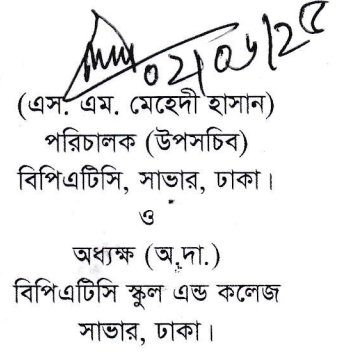 ০২/০৬/২৫
(এস. এম. মেহেদী হাসান)
পরিচালক (উপসচিব)
বিপিএটিসি, সাভার, ঢাকা।
ও
অধ্যক্ষ (অ.দা.)
বিপিএটিসি স্কুল এন্ড কলেজ
সাভার, ঢাকা।